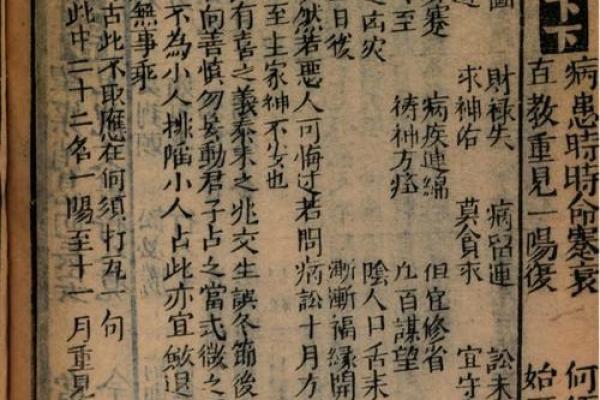 下下
病患時時命蹇衰 何
直教重見一陽復 始
圖 財祿失 病留連 訟未
求神佑 莫貪求 宜守
蹇 病疾連綿 但宜修省
至 禱神方痊 凡百謀望
之凶災 陰人口舌未
日後 漸漸福緣開
然若惡人可悔过若問病訟十月方
至主家神不少也
有喜之義泰来之兆交生誤冬節後
向善慎勿妄動君子占之當式微之
不為小人排陷小人占此亦宜斂退
無事乖
占此不取應在何須打瓦一句
此中二十二名一陽至十一月重見